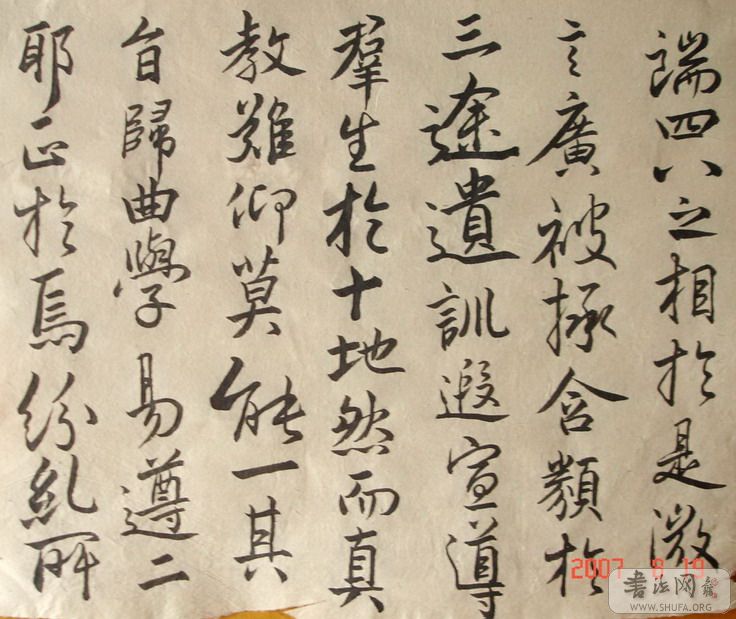 端四八之相於是微
言廣被拯含類於
三途遺訓遐宣導
群生於十地然而真
教難仰莫能一其
旨歸曲學易遵二
耶正於焉紛糺所
2007 8 19
書法网
WWW.SHUFA.ORG